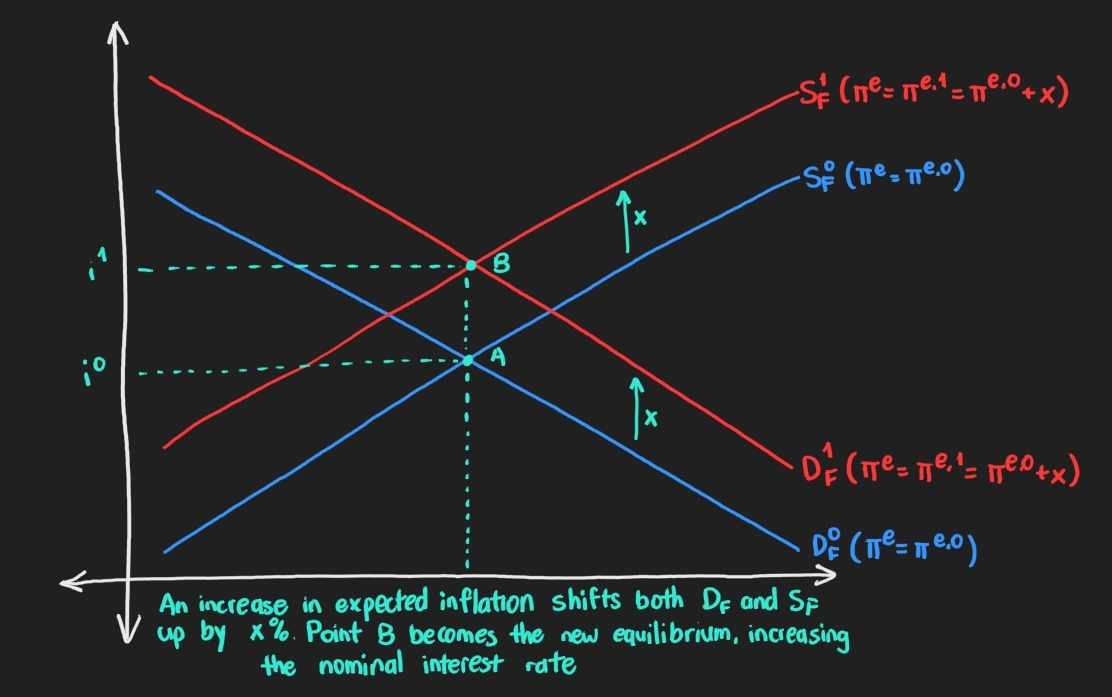 S¹F (πᵉ = πᵉ·¹ = πᵉ·⁰ + x)
S⁰F (πᵉ = πᵉ·⁰)
x
i¹
B
A
i⁰
x
D¹F (πᵉ = πᵉ·¹ = πᵉ·⁰ + x)
D⁰F (πᵉ = πᵉ·⁰)
An increase in expected inflation shifts both DF and SF
up by x%. Point B becomes the new equilibrium, increasing
the nominal interest rate